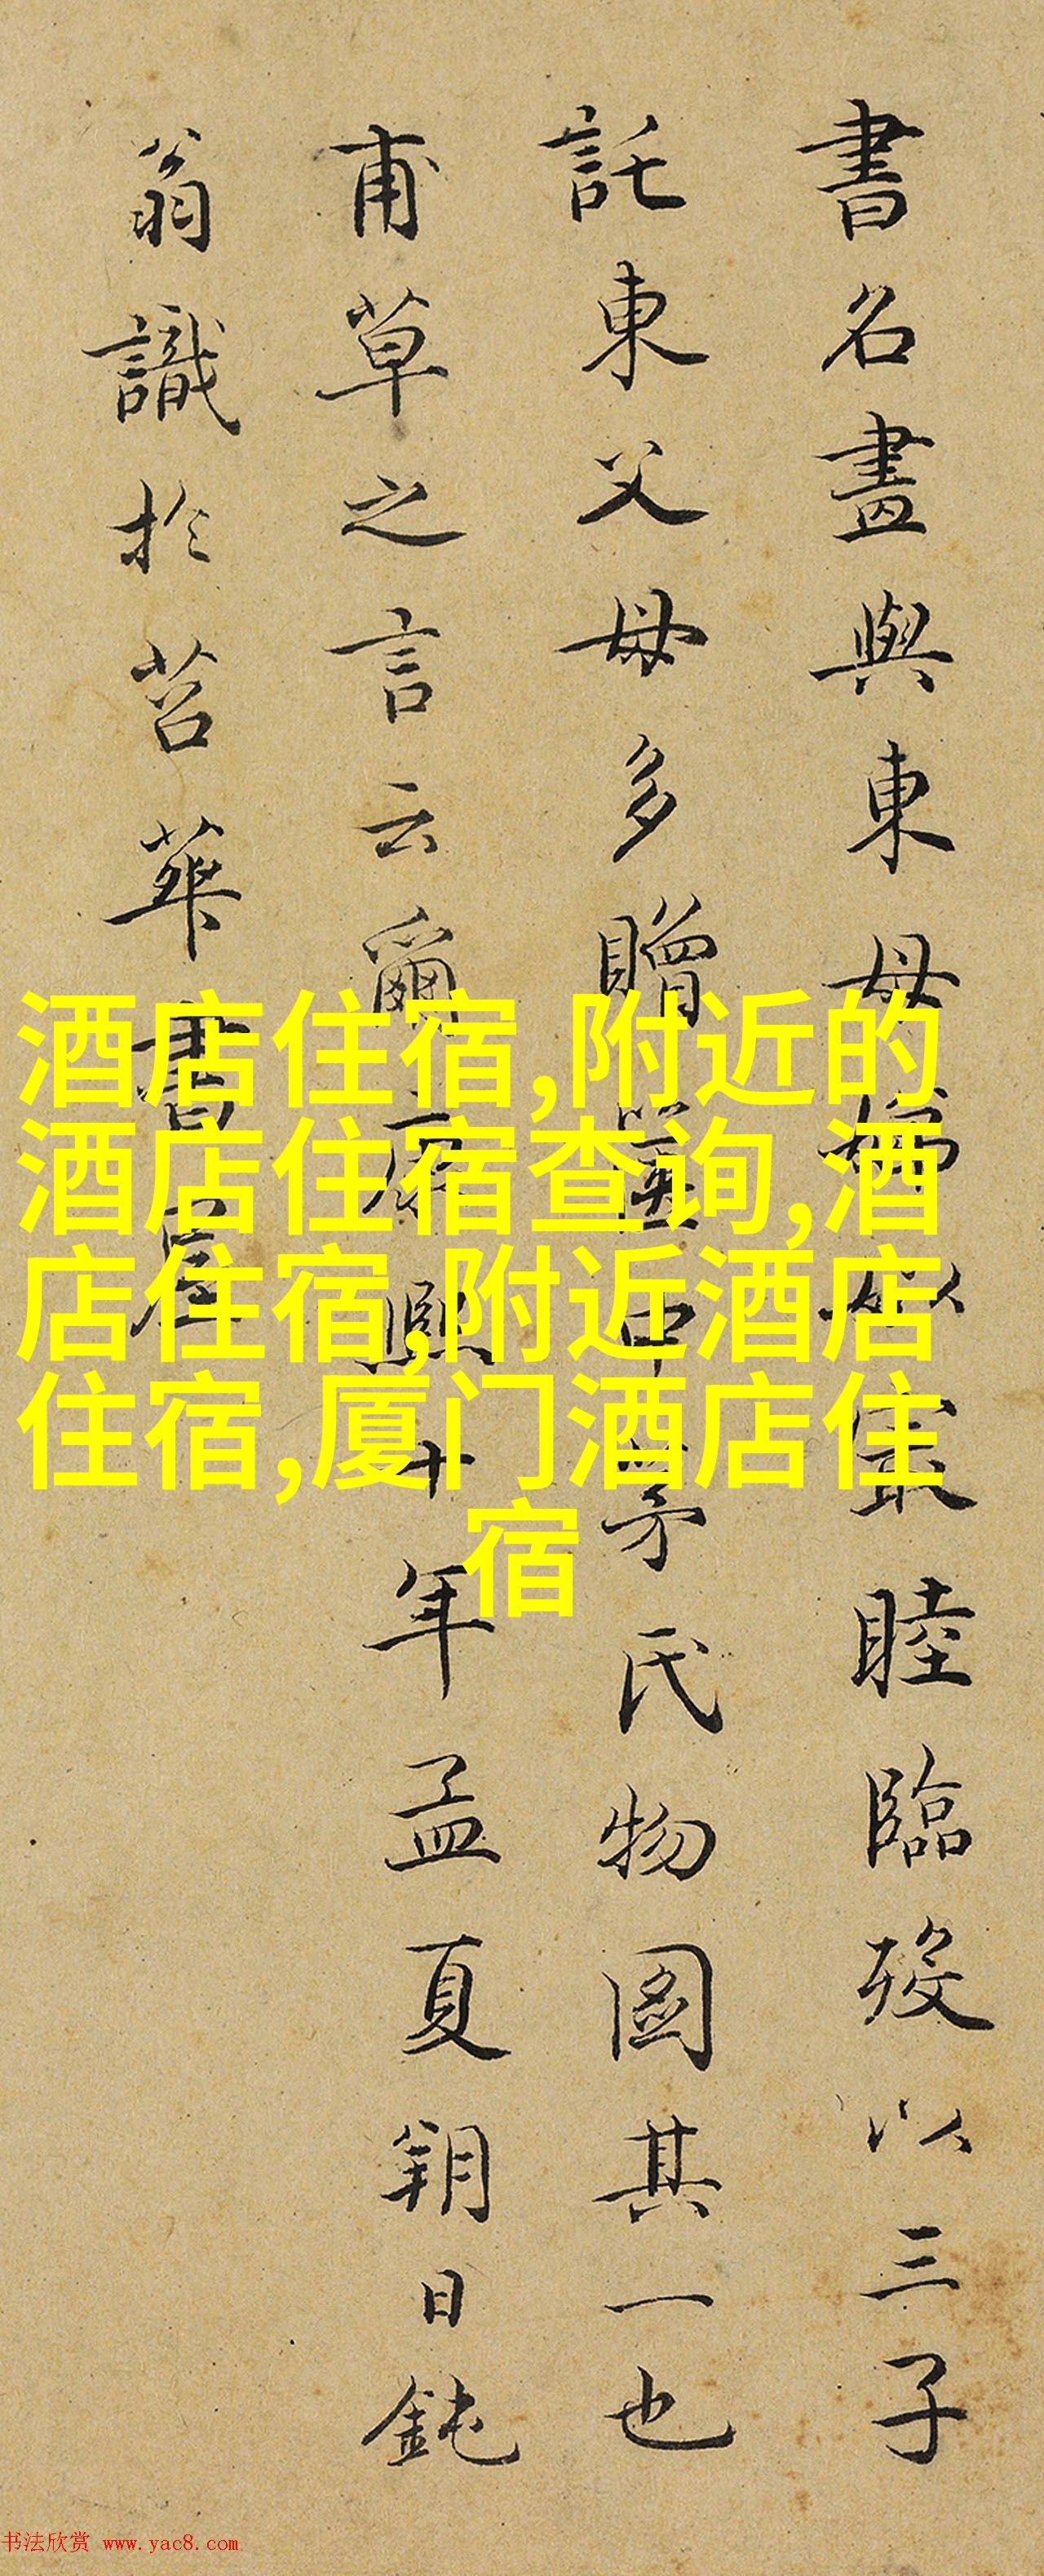 書名畫與東母娣姒最睦臨歿以三子
託東父母多贈遺中茅氏物圖其一也
甫草之言云爾康熙十年孟夏朔日鈍
翁識於苕華書屋
酒店住宿,附近的
酒店住宿查询,酒
店住宿,附近酒店
住宿,厦门酒店住
宿
书法欣赏 www.yac8.com